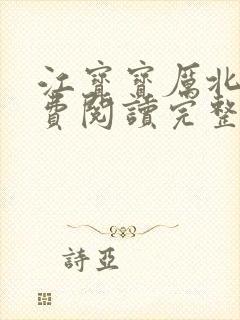 江寶寶厲北
費閱讀完整
詩亞